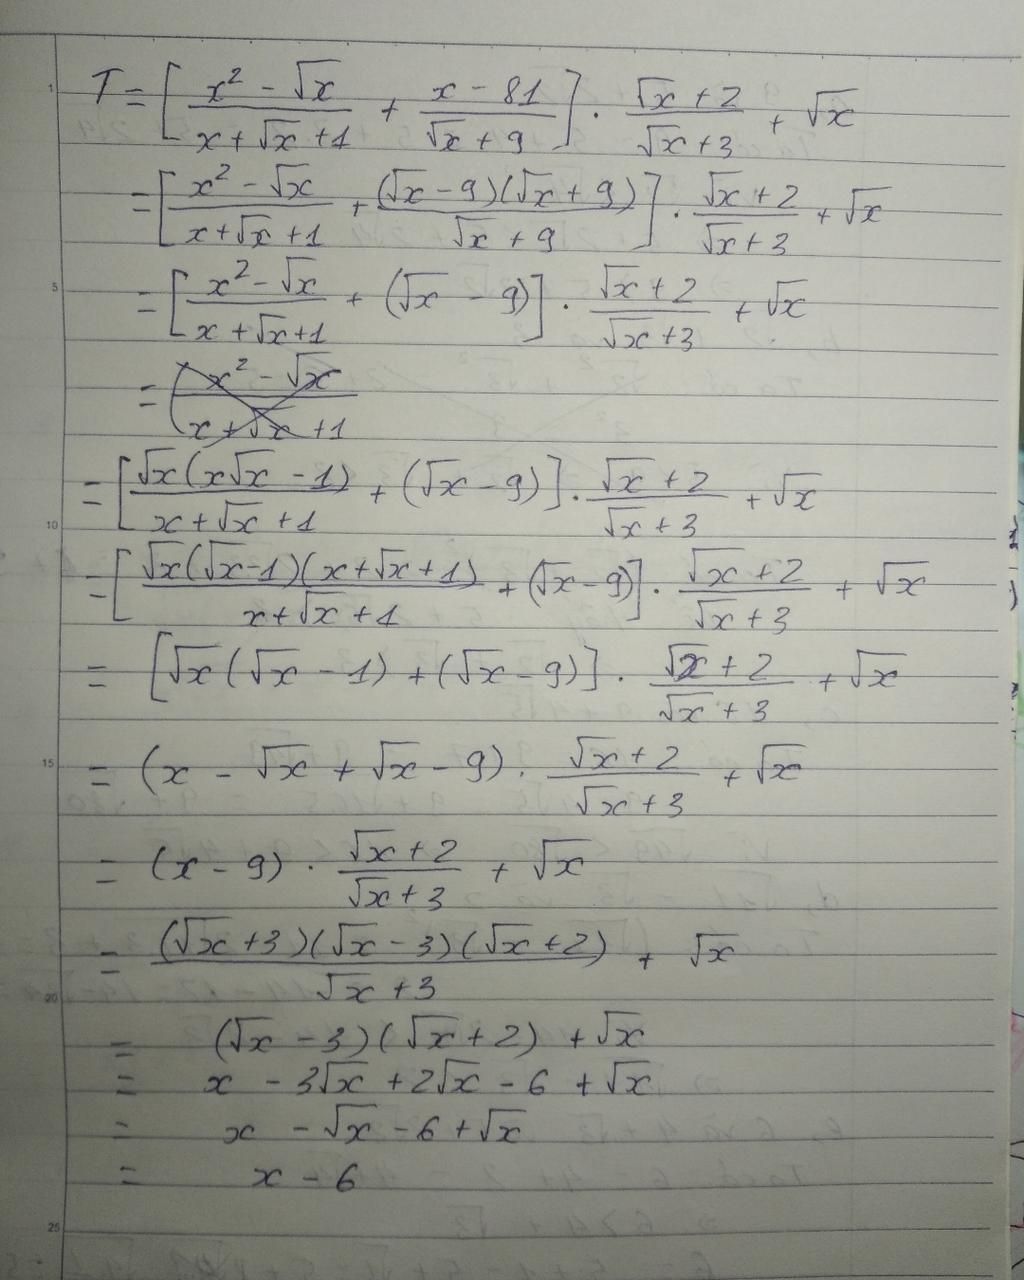 T = [ (x² - √x)/(x + √x + 1) + (x - 81)/(√x + 9) ] . (√x + 2)/(√x + 3) + √x
= [ (x² - √x)/(x + √x + 1) + ((√x - 9)(√x + 9))/(√x + 9) ] . (√x + 2)/(√x + 3) + √x
= [ (x² - √x)/(x + √x + 1) + (√x - 9) ] . (√x + 2)/(√x + 3) + √x
= ( (x² - √x)/(x + √x + 1)
= [ (√x(x√x - 1))/(x + √x + 1) + (√x - 9) ] . (√x + 2)/(√x + 3) + √x
= [ (√x(√x - 1)(x + √x + 1))/(x + √x + 1) + (√x - 9) ] . (√x + 2)/(√x + 3) + √x
= [ √x(√x - 1) + (√x - 9) ] . (√x + 2)/(√x + 3) + √x
= (x - √x + √x - 9) . (√x + 2)/(√x + 3) + √x
= (x - 9) . (√x + 2)/(√x + 3) + √x
= ((√x + 3)(√x - 3)(√x + 2))/(√x + 3) + √x
= (√x - 3)(√x + 2) + √x
= x - 3√x + 2√x - 6 + √x
= x - √x - 6 + √x
= x - 6